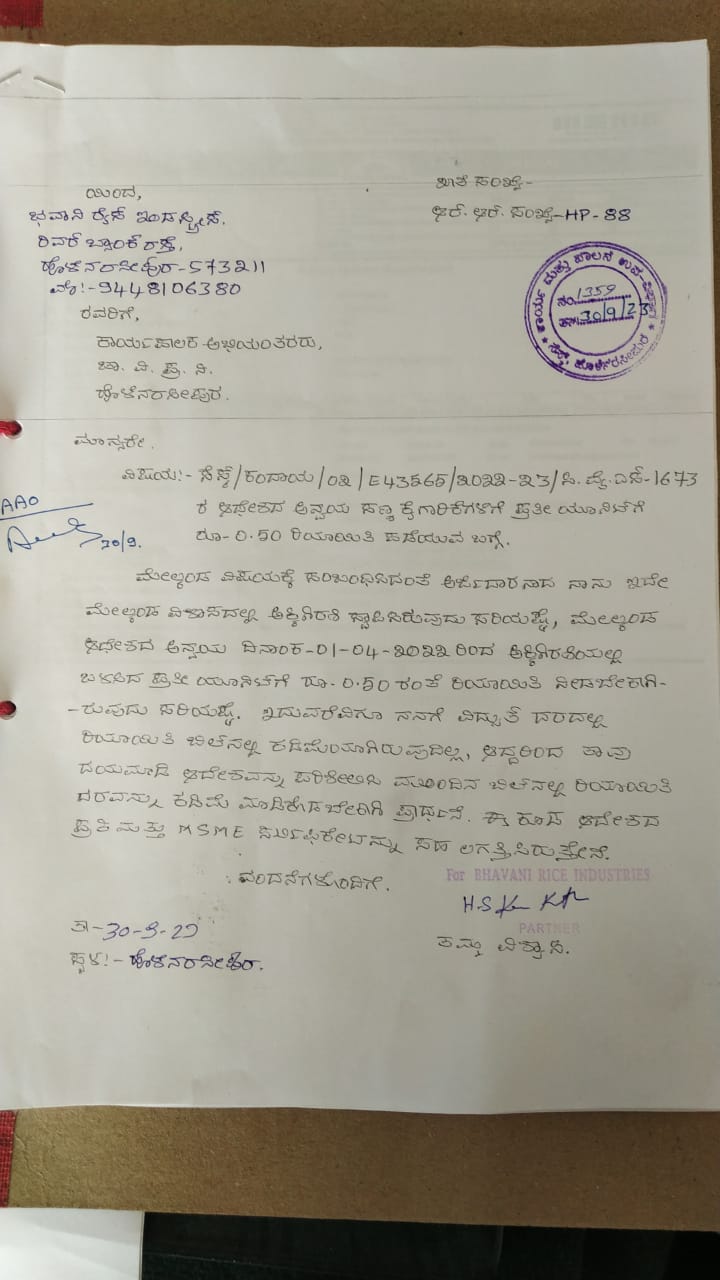 ಯಿಂದ,
ಭವಾನಿ ರೈಸ್ ಇಂಡಸ್ಟ್ರೀಸ್.
ರಿವರ್ ಬ್ಯಾಂಕ್ ರಸ್ತೆ,
ಹೊಳೆನರಸೀಪುರ-573211
ಮೊ:-9448106380
ಖಾತೆ ಸಂಖ್ಯೆ-
ಆರ್. ಆರ್. ಸಂಖ್ಯೆ-HP-88
ಕಾರ್ಯ ಮತ್ತು ಪಾಲನ ಉಪ-ವಿಭಾಗ
ನಂ. 1359
30/9/23
ಸೆಸ್ಕ್, ಹೊಳೆನರಸೀಪುರ
ರವರಿಗೆ,
ಕಾರ್ಯಪಾಲಕ ಅಭಿಯಂತರರು,
ಚಾ. ವಿ. ಪ್ರ. ನಿ.
ಹೊಳೆನರಸೀಪುರ.
ಮಾನ್ಯರೇ.
ವಿಷಯ:- ಸೆಸ್ಕ್/ಕಂದಾಯ/02/E43565/2022-23/ಸಿ.ವೈ.ಎಸ್-1673
ರ ಆಧೇಶದ ಅನ್ವಯ ಸಣ್ಣ ಕೈಗಾರಿಕೆಗಳಿಗೆ ಪ್ರತೀ ಯೂನಿಟ್‌ಗೆ
ರೂ- 0.50 ರಿಯಾಯಿತಿ ಪಡೆಯುವ ಬಗ್ಗೆ.
AAO
30/9.
ಮೇಲ್ಕಂಡ ವಿಷಯಕ್ಕೆ ಸಂಬಂಧಿಸಿದಂತೆ ಅರ್ಜಿದಾರನಾದ ನಾನು ಇದೇ
ಮೇಲ್ಕಂಡ ವಿಳಾಸದಲ್ಲಿ ಅಕ್ಕಿಗಿರಣಿ ಸ್ಥಾಪಿಸಿರುವುದು ಸರಿಯಷ್ಟೆ, ಮೇಲ್ಕಂಡ
ಆಧೇಶದ ಅನ್ವಯ ದಿನಾಂಕ-01-04-2022 ರಿಂದ ಅಕ್ಕಿಗಿರಣಿಯಲ್ಲಿ
ಬಳಸಿದ ಪ್ರತೀ ಯೂನಿಟ್‌ಗೆ ರೂ- 0.50 ರಂತೆ ರಿಯಾಯಿತಿ ನೀಡಬೇಕಾಗಿ-
-ರುವುದು ಸರಿಯಷ್ಟೆ. ಇದುವರೆವಿಗೂ ನನಗೆ ವಿದ್ಯುತ್ ದರದಲ್ಲಿ
ರಿಯಾಯಿತಿ ಬಿಲ್‌ನಲ್ಲಿ ಕಡಿಮೆಯಾಗಿರುವುದಿಲ್ಲ, ಆದ್ದರಿಂದ ತಾವು
ದಯಮಾಡಿ ಆದೇಶವನ್ನು ಪರಿಶೀಲಿಸಿ ಮುಂದಿನ ಬಿಲ್‌ನಲ್ಲಿ ರಿಯಾಯಿತಿ
ದರವನ್ನು ಕಡಿಮೆ ಮಾಡಿಕೊಡಬೇಕಾಗಿ ಪ್ರಾರ್ಥನೆ. ಈ ಕೂಡ ಆದೇಶದ
ಪ್ರತಿ ಮತ್ತು MSME ಸರ್ಟಿಫಿಕೇಟನ್ನು ಸಹ ಲಗತ್ತಿಸಿರುತ್ತೇನೆ.
ವಂದನೆಗಳೊಂದಿಗೆ.
For BHAVANI RICE INDUSTRIES
PARTNER
ತಾ-30-9-23
ತಮ್ಮ ವಿಶ್ವಾಸಿ.
ಸ್ಥಳ:- ಹೊಳೆನರಸೀಪುರ.